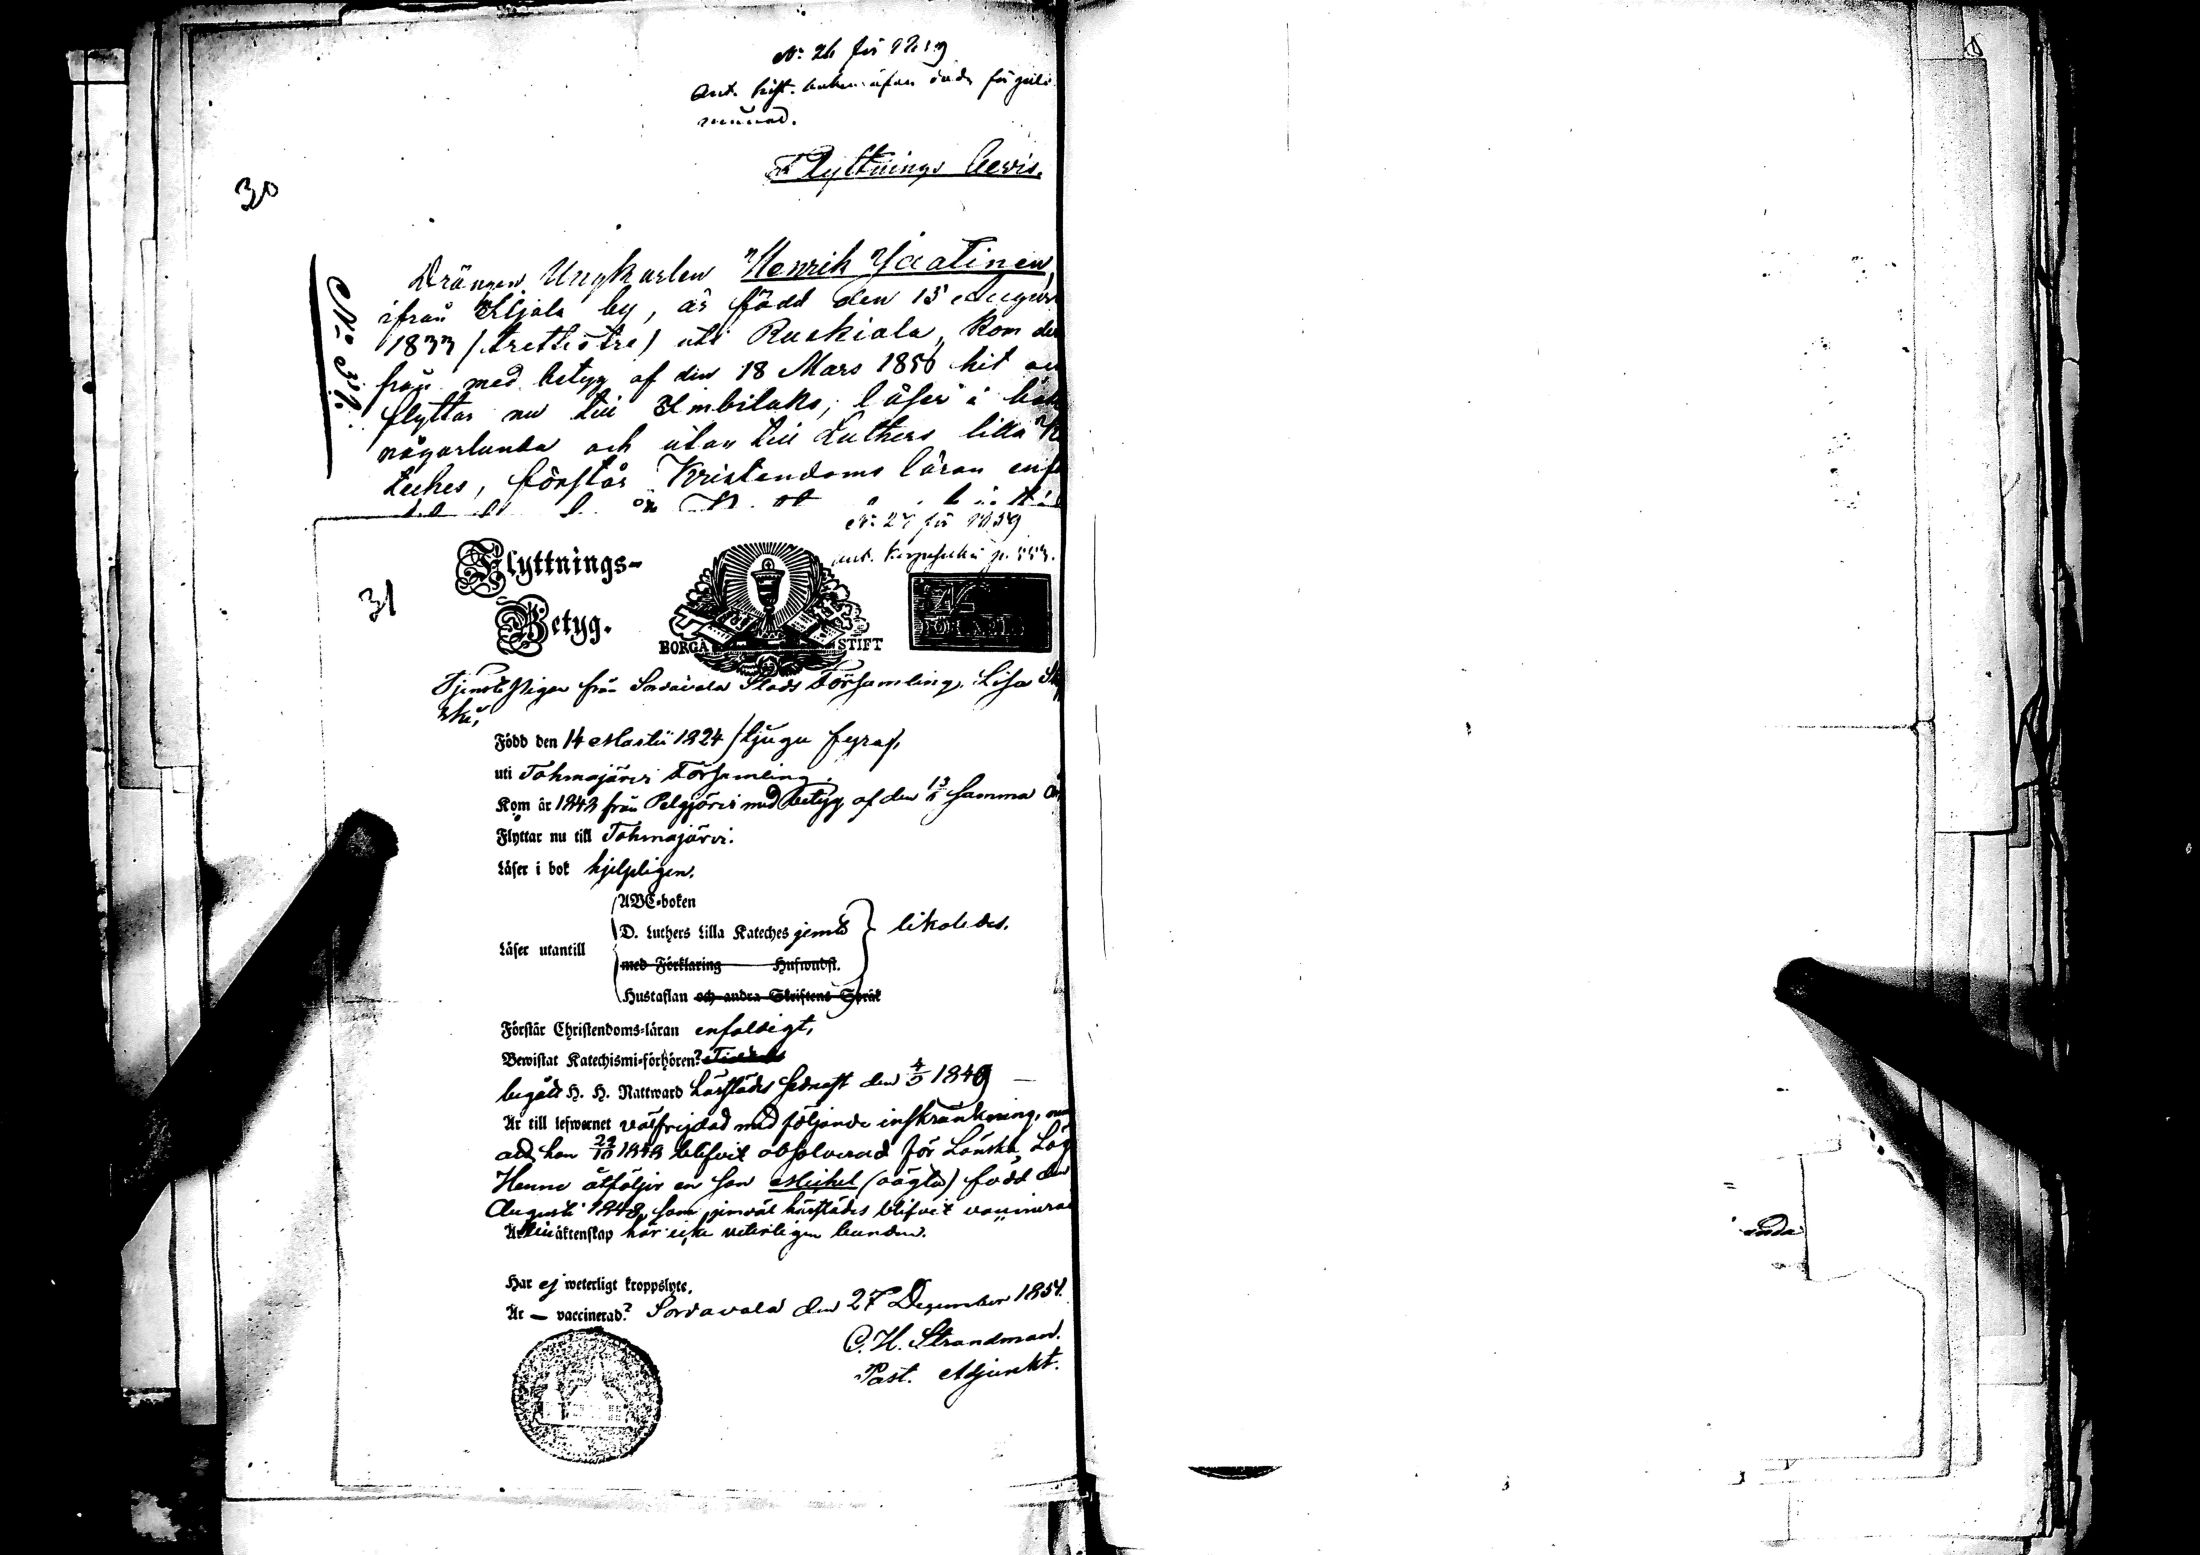 30
Flyttnings bevis.
Drängen Ungkarlen Henrik Jaatinen,
ifrån Kljala by, är född den 15 Augus
1833 (trettiotre) uti Ruskiala, kom der
från med betyg af den 18 Mars 1856 hit
flyttar nu till Imbilaks, läser i bok
någorlunda och utan till Luthers lilla
teches, förstår Kristendoms läran enf
31
No 27 för 1859
Flyttnings-
Betyg.
BORGÅ STIFT
Tjenste Pigan från Sordavala Stads Församling, Lisa
Född den 14 Martii 1824 /tjugu fyra/,
uti Tohmajärvi Församling.
Kom år 1848 från Pelgjärvi med betyg af den samma
Flyttar nu till Tohmajärvi.
Läser i bok hjelpligen.
ABC-boken
D. Luthers Lilla Kateches jemte likaledes.
Läser utantill
med Förklaring Huswudst.
Hustaflan och andra Skriftens Språk
Förstår Christendoms-läran enfaldigt,
Bewistat Katechismi-förhören?
begått H. H. Nattward härstädes sednast den 4/5 1849
Är till lefwernet välfrejdad med följande inskränkning,
att hon 1848 blifvit absolverad för Lönska Läg
Henne åtföljer en son Michel (oägta) född den
Augusti 1848, som jemväl härstädes blifvit
Till äktenskap här icke veterligen bunden.
Har ej weterligt kroppslyte.
Är — vaccinerad? Sordavala den 27 December 1854.
C. H. Strandman.
Past. Adjunkt.